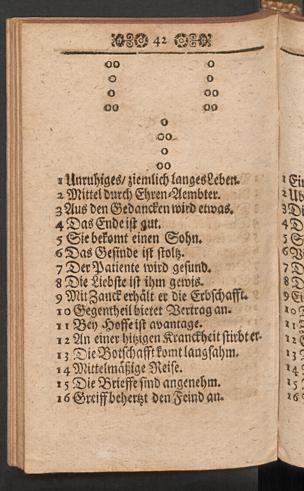 42
1 Unruhiges/ ziemlich langes Leben.
2 Mittel durch Ehren-Aembter.
3 Aus den Gedancken wird etwas.
4 Das Ende ist gut.
5 Sie bekomt einen Sohn.
6 Das Gesinde ist stoltz.
7 Der Patiente wird gesund.
8 Die Liebste ist ihm gewis.
9 Mit Zanck erhält er die Erbschafft.
10 Gegentheil bietet Vertrag an.
11 Bey Hoffe ist avantage.
12 An einer hitzigen Kranckheit stirbt er.
13 Die Botschafft komt langsahm.
14 Mittelmäßige Reise.
15 Die Brieffe sind angenehm.
16 Greiff behertzt den Feind an.